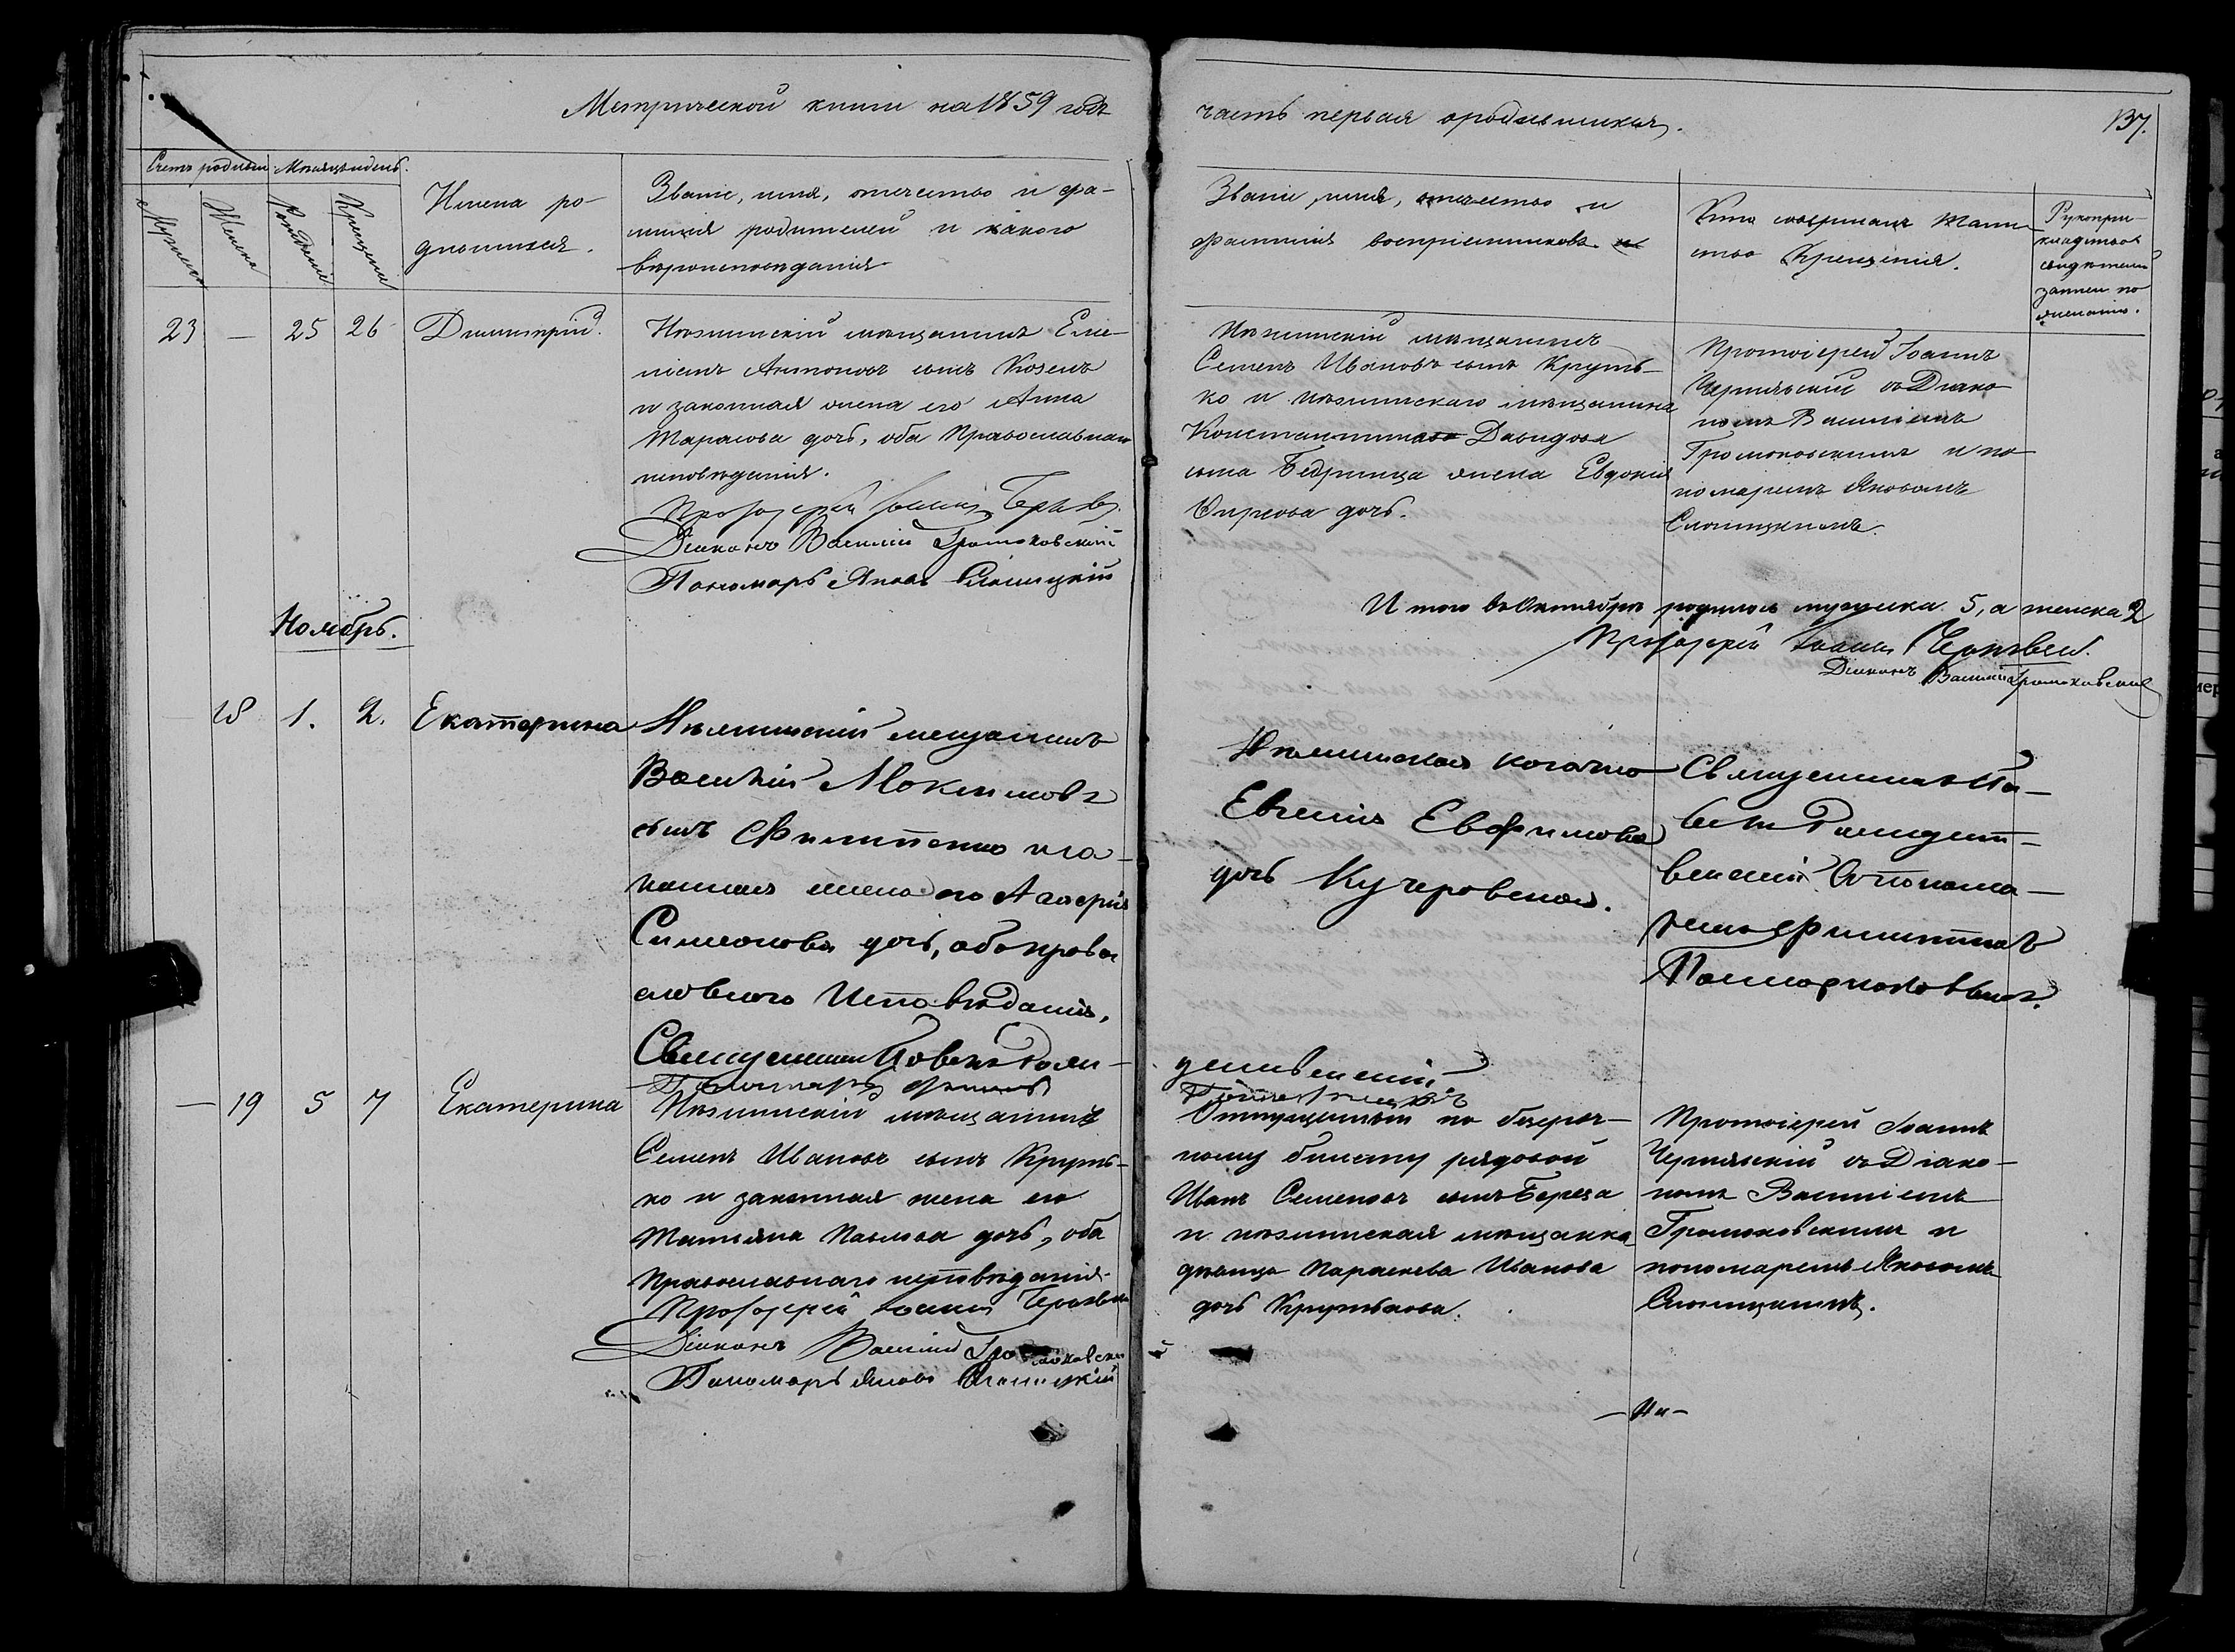 Метрической книги на 1859 годъ
часть первая о родившихся.
137.
Счетъ родившихся
Мѣсяцъ и день.
Мужска
Женска
Рожденія
Крещенія
Имена ро-
дившихся.
Званіе, имя, отчество и фа-
милія родителей и какого
вѣроисповѣданія
Званіе, имя, отчество и
фамилія воспріемниковъ.
Кто совершалъ Таин-
ство Крещенія.
Рукопри-
кладство
свидѣтелей
записи по
желанію.
23 — 25 26 Димитрій.
Нѣжинскій мѣщанинъ
Антоновъ сынъ Козелъ
и законная жена его Анна
Тарасова дочь, оба Православнаго
исповѣданія.
Протоіерей Іоаннъ
Діаконъ Василій Громаковскій
Пономарь Яковъ
Нѣжинскій мѣщанинъ
Семенъ Ивановъ сынъ Круть-
ко и нѣжинскаго мѣщанина
Константина Давидова
сына Бедрица жена Евдокія
дочь.
Протоіерей Іоаннъ
Чернявскій съ Діако-
номъ Василіемъ
Громаковскимъ и по-
номаремъ Яковомъ
Итого въ Октябрѣ родилось мужеска 5, а женска 2
Протоіерей Іоаннъ Чернявскій.
Діаконъ Василій Громаковскій
Ноябрь.
18 1. 2. Екатерина
Нѣжинскій мещанинъ
Василій Максимовъ
сынъ Филипенко и за-
конная жена его
Симеонова дочь, оба право
славнаго Исповѣданія.
Священникъ
Пономарь
Нѣжинская
Евгенія Евфимова
дочь Кучеровская.
Священникъ Па-
велъ
съ понома-
ремъ Филиппомъ
— 19 5 7 Екатерина
Нѣжинскій мѣщанинъ
Семенъ Ивановъ сынъ Круть-
ко и законная жена его
Татьяна Павлова дочь, оба
Православнаго исповѣданія.
Протоіерей Іоаннъ Чернявскій
Діаконъ Василій Громаковскій
Пономарь Яковъ
Отпущенный по безсроч-
ному билету рядовой
Иванъ Семеновъ сынъ Береза
и нѣжинская мѣщанка
дѣвица Параскева Иванова
дочь Крутькова.
Протоіерей Іоаннъ
Чернявскій съ Діако-
номъ Василіемъ
Громаковскимъ и
пономаремъ Яковомъ